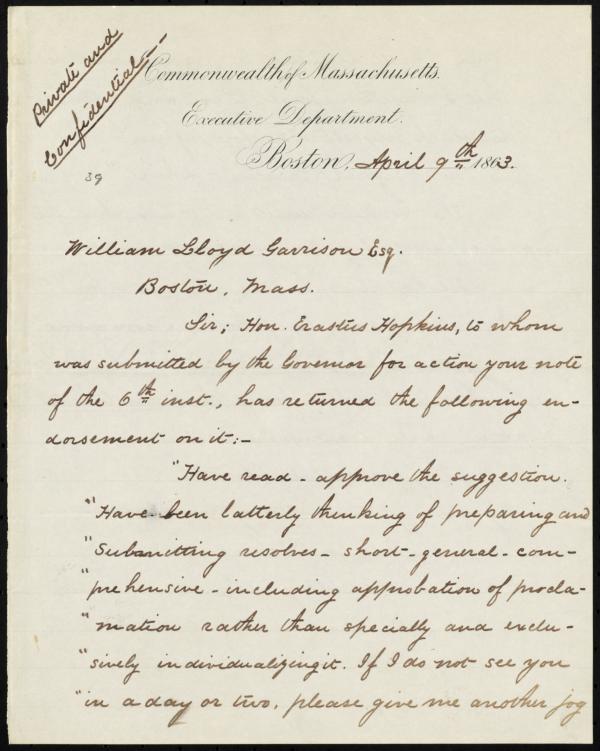 Private and
Confidential—
Commonwealth of Massachusetts.
Executive Department.
Boston, April 9th 1863.
39
William Lloyd Garrison Esq.
Boston, Mass.
Sir; Hon. Erastus Hopkins, to whom
was submitted by the Governor for action your note
of the 6th inst., has returned the following en-
dorsement on it:-
"Have read - approve the suggestion.
"Have been latterly thinking of preparing and
"submitting resolves - short - general - com-
"prehensive - including approbation of procla-
"mation rather than specially and exclu-
"sively individualizing it. If I do not see you
"in a day or two, please give me another jog